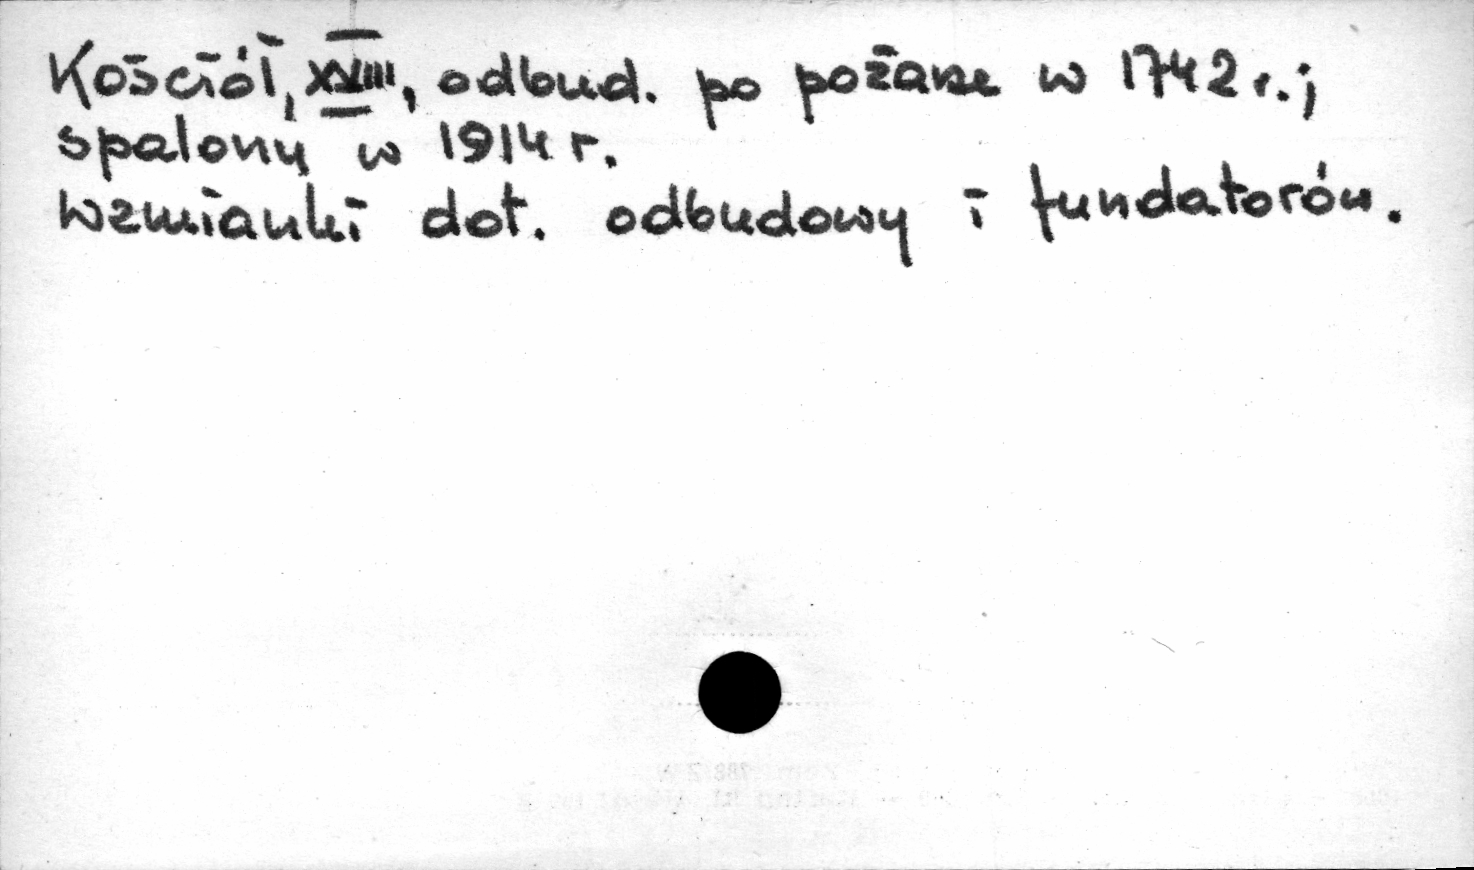 Kościół, XVIII, odbud. po pożarze w 1742 r.;
spalony w 1914 r.
Wzmianki dot. odbudowy i fundatorów.